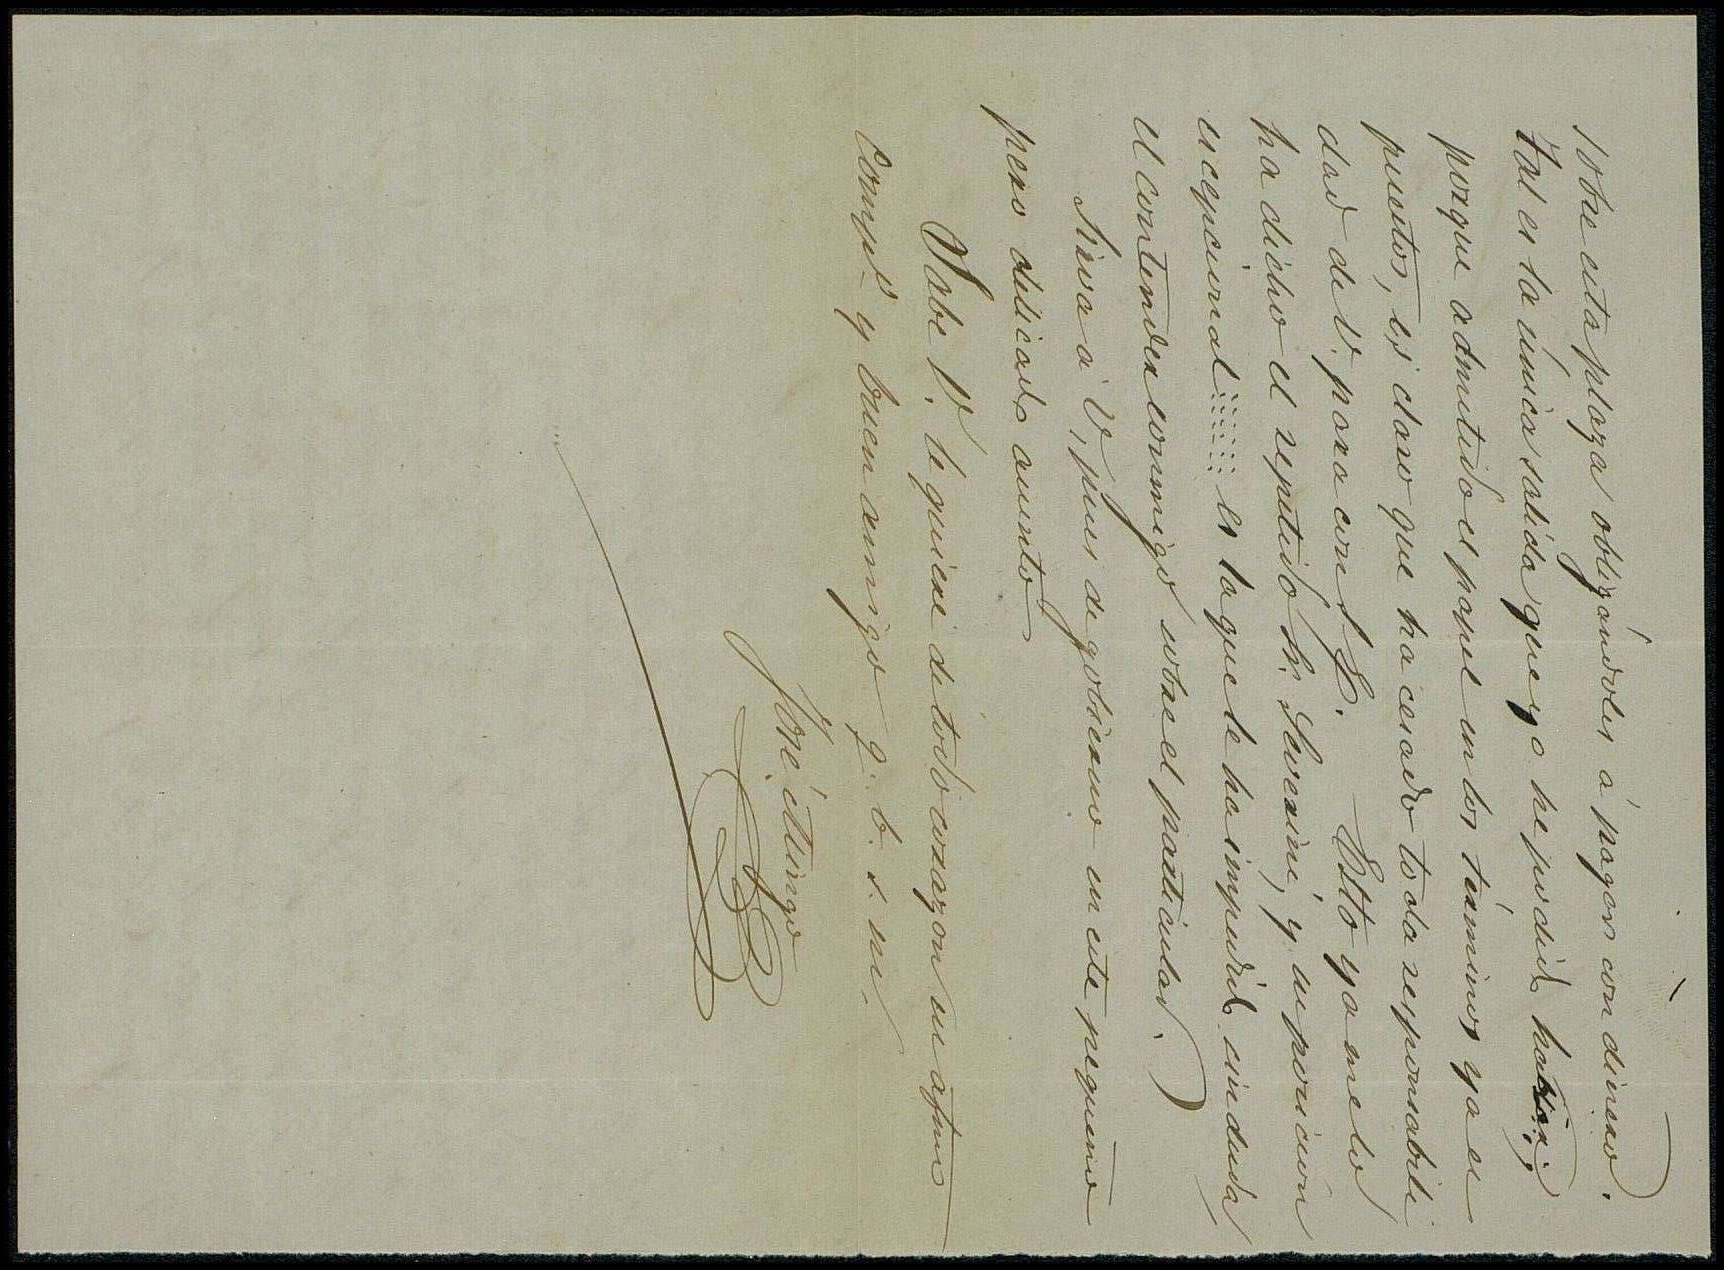 sobre esta plaza obligándoles á pagar con dinero.
Tal es la única salida que yo he podido hallar;
porque admitido el papel en los términos ya es
puestos, es claro que ha cesado toda responsabili
dad de V. para con L. E. Esto ya me lo
ha dicho el repetido Sr. , y su posicion
escepcional :::::: es la que le ha impedido sin duda,
el contender conmigo sobre el particular.
Sirva á V, pues de gobierno en este pequeño
pero delicado asunto
Sabe V. le quiere de todo corazon su afmo
compo y buen amigo q. b. s. m.
José Mingo